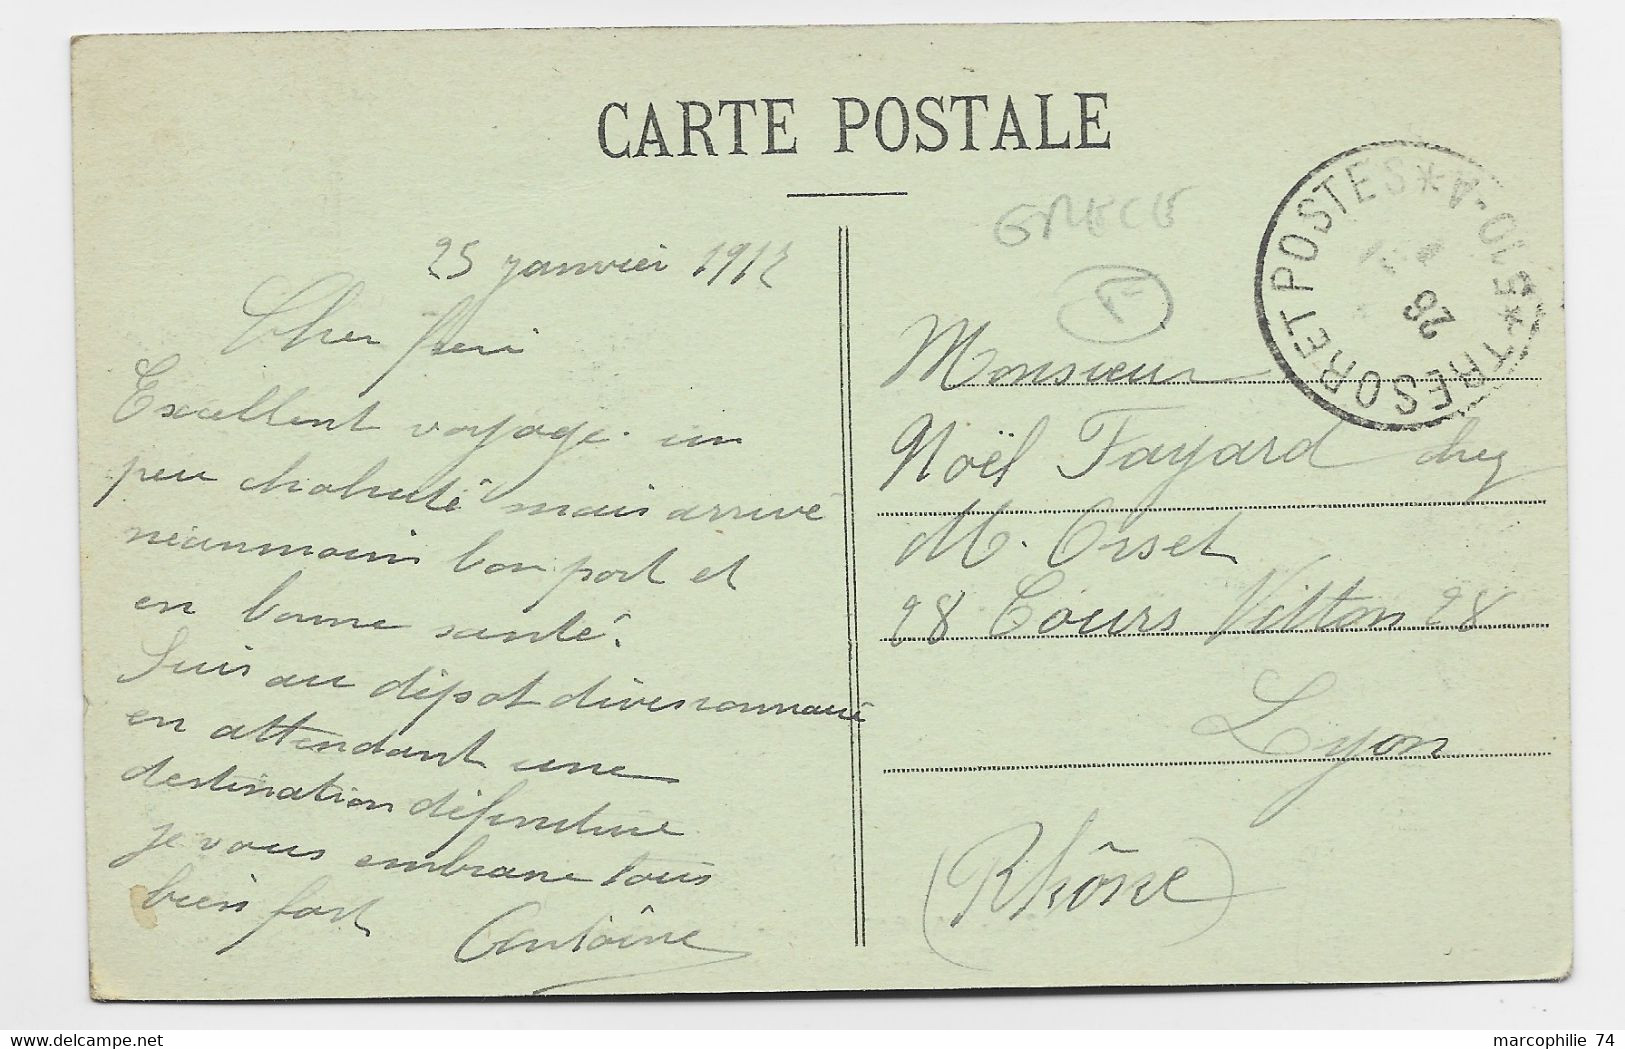 CARTE POSTALE
GRECE
F
TRESOR ET POSTES * 510 - A *
26
25 janvier 1917
Cher frère
Excellent voyage. un
peu chahuté mais arrivé
néanmoins bon port et
en bonne santé.
Suis au dépot divisionnaire
en attendant une
destination définitive
je vous embrasse tous
bien fort Antoine
Monsieur
Noël Fayard chez
M. Orset
28 Cours Vitton 28
Lyon
(Rhône)
marcophilie 74